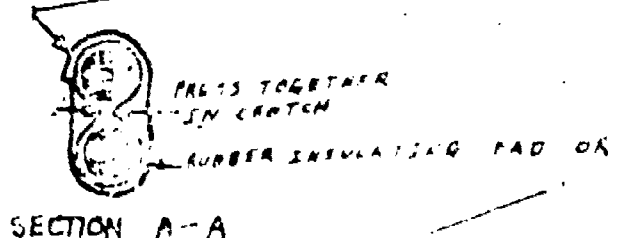 PRESS TOGETHER
IN CROTCH
RUBBER INSULATING PAD OR
SECTION A-A